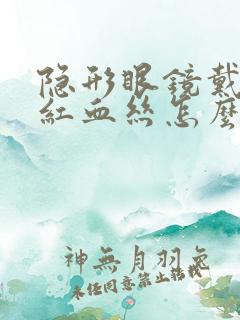 隐形眼镜戴
红血丝怎麼
神無月羽兔
未经同意禁止转载